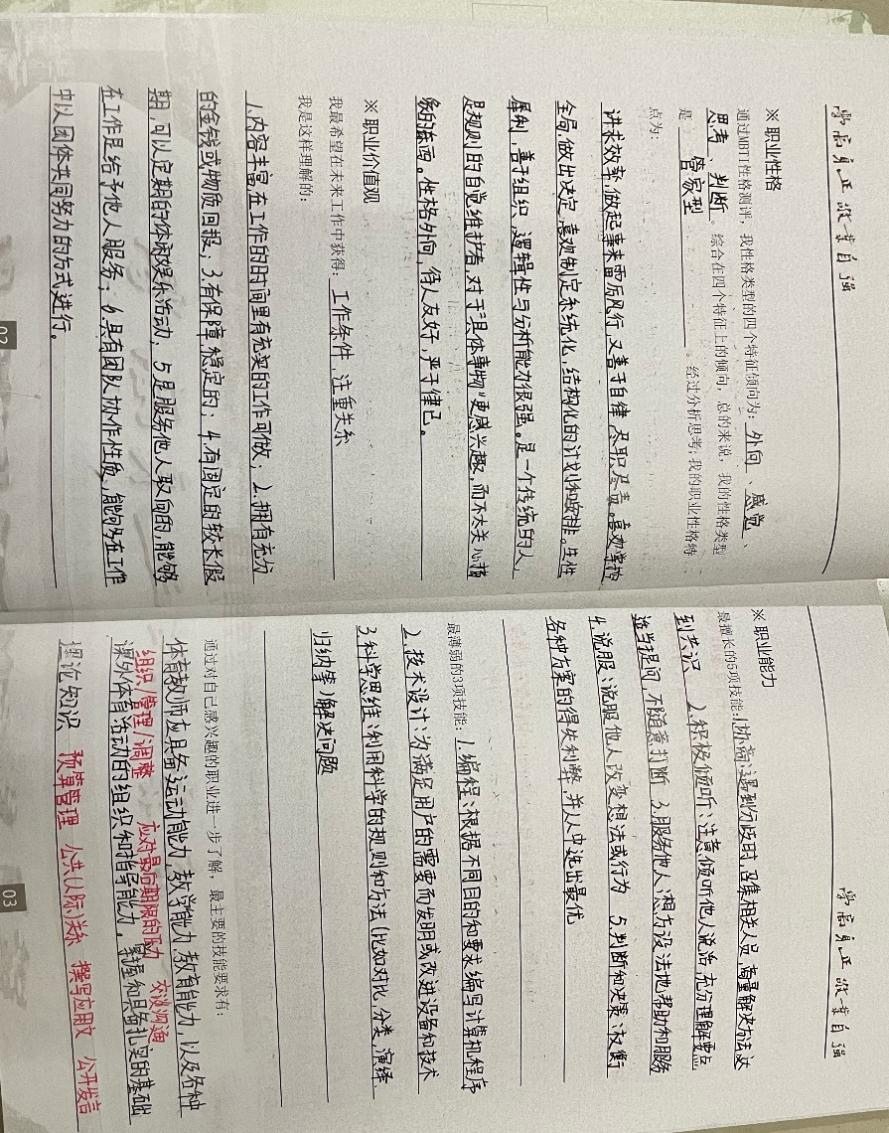 学高身正 敬业自强
※ 职业性格
通过MBTI性格测评，我性格类型的四个特征倾向为：外向、感觉、
思考、判断 综合在四个特征上的倾向，总的来说，我的性格类型
是 管家型 。经过分析思考，我的职业性格特
点为：
讲求效率，做起事来雷厉风行，又善于自律，尽职尽责。喜欢掌控
全局，做出决定，喜欢制定系统化，结构化的计划和安排。生性
犀利，善于组织，逻辑性与分析能力很强。是一个传统的人，
是规则的自觉维护者，对于“具体事物”更感兴趣，而不太关心抽
象的东西。性格外向，待人友好，严于律己。
※ 职业价值观
我最希望在未来工作中获得：工作条件，注重关系
我是这样理解的：
1.内容丰富，在工作的时间里有充实的工作可做；2.拥有充分
的金钱或物质回报；3.有保障，稳定的；4.有固定的较长假
期，可以定期的休闲娱乐活动；5.是服务他人取向的，能够
在工作是给予他人服务；6.具有团队协作性质，能够在工作
中以团体共同努力的方式进行。
02
学高身正 敬业自强
※ 职业能力
最擅长的5项技能：1.协商：遇到分歧时，召集相关人员，商量解决方法，达
到共识 2.积极倾听：注意倾听他人说话，充分理解要点，
适当提问，不随意打断 3.服务他人：想方设法地帮助和服务
4.说服：说服他人改变想法或行为 5.判断和决策：权衡
各种方案的得失利弊，并从中选出最优
最薄弱的3项技能：1.编程：根据不同目的和要求编写计算机程序
2.技术设计：为满足用户的需要而发明或改进设备和技术
3.科学思维：利用科学的规则和方法（比如对比，分类，演绎
归纳等）解决问题
通过对自己感兴趣的职业进一步了解，最主要的技能要求有：
体育教师应具备运动能力，教学能力，教育能力，以及各种
组织/管理/调整 应对最后期限的压力 交谈沟通
课外体育活动的组织和指导能力。掌握和具备扎实的基础
理论知识 预算管理 公共（人际）关系 撰写应用文 公开发言
03